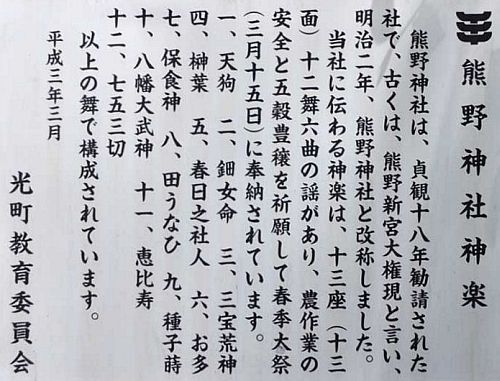 熊野神社神楽
熊野神社は、貞観十八年勧請された
社で、古くは、熊野新宮大権現と言い、
明治二年、熊野神社と改称しました。
当社に伝わる神楽は、十三座（十三
面）十二舞六曲の謡があり、農作業の
安全と五穀豊穣を祈願して春季大祭
（三月十五日）に奉納されています。
一、天狗　二、鈿女命　三、三宝荒神
四、榊葉　五、春日之社人　六、お多
七、保食神　八、田うなひ　九、種子蒔
十、八幡大武神　十一、恵比寿
十二、七五三切
以上の舞で構成されています。
平成三年三月
光町教育委員会